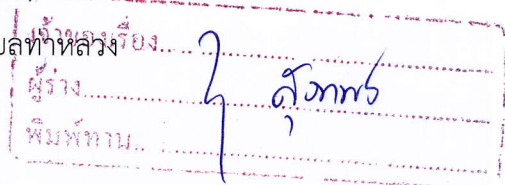 บลท่าหลวง
เจ้าของเรื่อง
ผู้ร่าง
พิมพ์ทาน